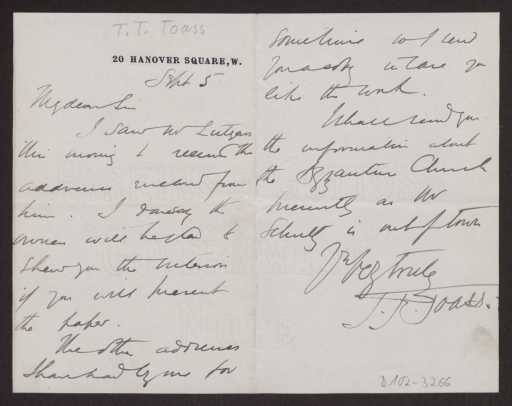 T. T. Toass
20 HANOVER SQUARE, W.
Sept 5
My dear Sir
I saw Mr
this morning & received the
addresses enclosed from
him. I daresay the
owners will be glad to
shew you the interior
if you will present
the paper.
The other addresses
I have had by me for
sometime so I send
you a copy in case you
like the work.
I shall send you
the information about
the Byzantine Church
presently as Mr
Schultz is out of town
Yrs very truly
J. J. Joass.
D102-3266